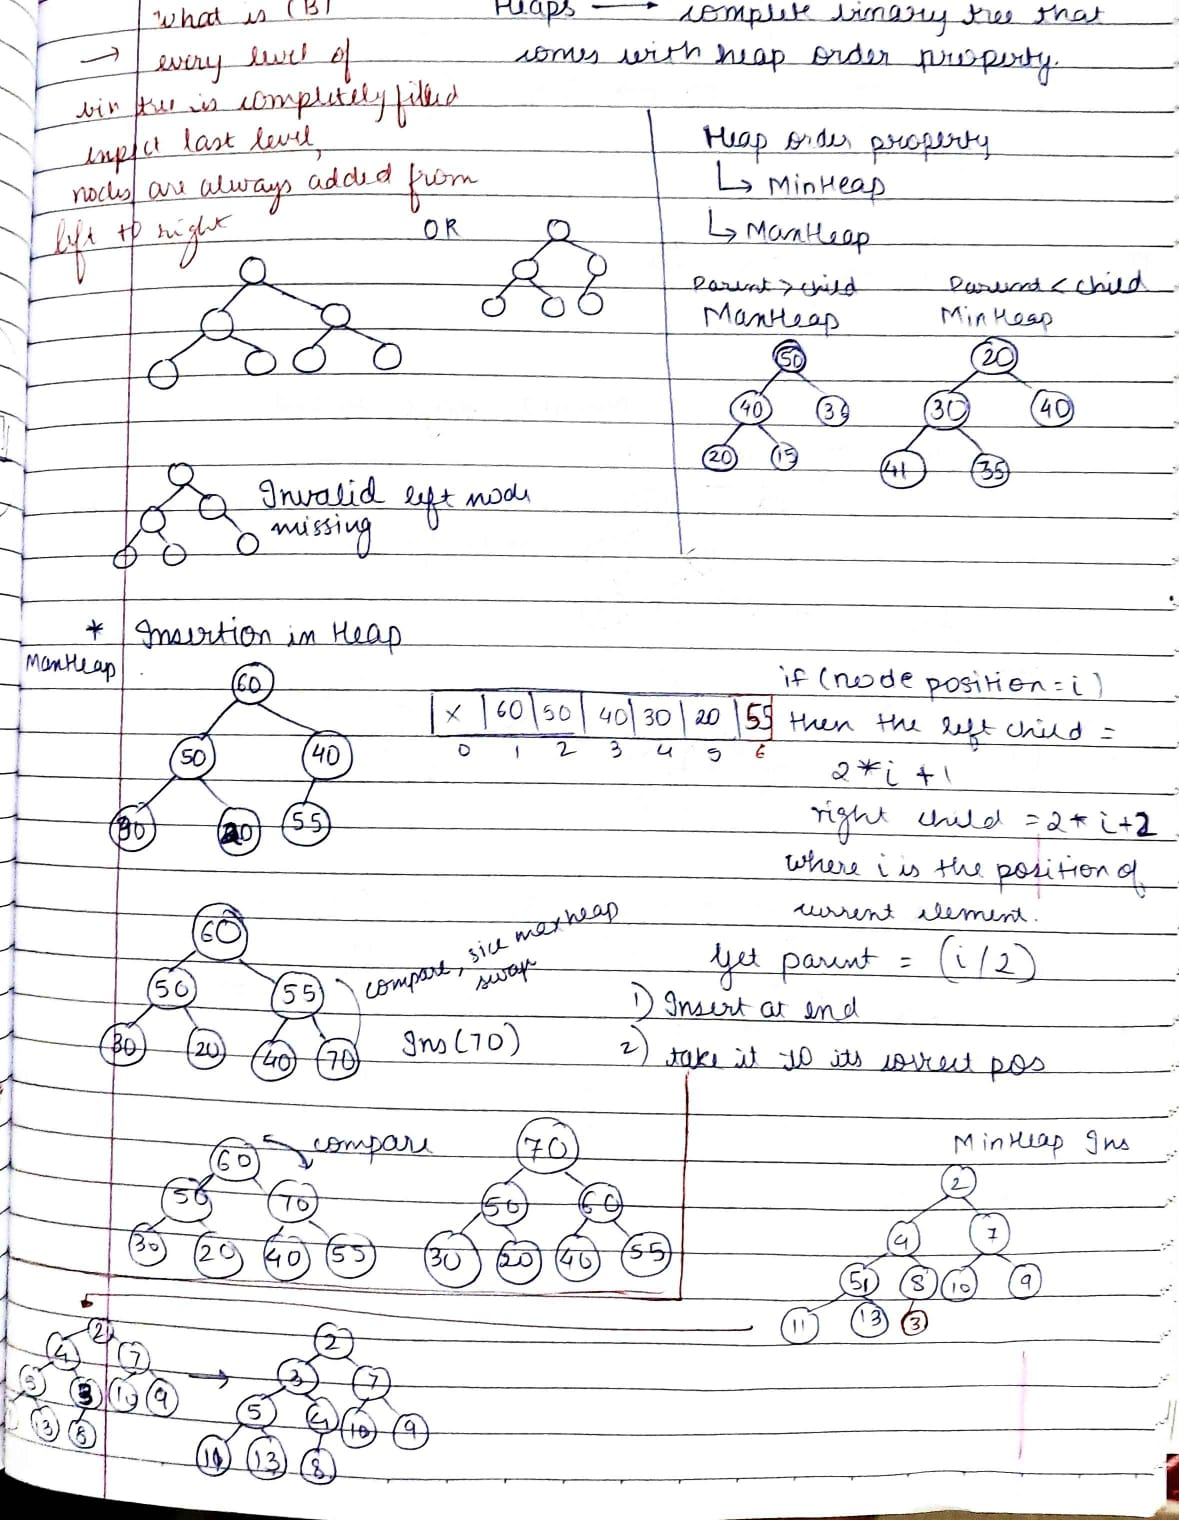 what is CBT
→ every level of
bin tree is completely filled
except last level,
nodes are always added from
left to right
Heaps → complete binary tree that
comes with heap order property.
OR
Heap order property
↳ MinHeap
↳ MaxHeap
Parent > child
MaxHeap
50
40
20 15
Parent < child
MinHeap
20
30 40
41 35
Invalid left node
missing
* Insertion in Heap
MaxHeap
60
50 40
30 20 55
X 60 50 40 30 20 55
0 1 2 3 4 5 6
if (node position = i)
then the left child =
2*i + 1
right child = 2*i+2
where i is the position of
current element.
Get parent = (i/2)
1) Insert at end
2) take it to its correct pos
60
50 55
30 20 40 70
compare, sice maxheap
swap
Ins(70)
60 compare
50 70
30 20 40 55
70
50 60
30 20 40 55
MinHeap Ins
2
4 7
5 8 10 9
11 13 3
2
4 7
5 3 10 9
13 8
→
2
3 7
5 4 10 9
11 13 8